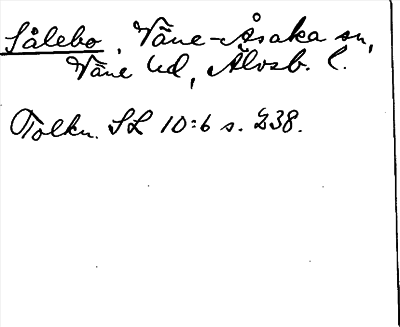 Sålebo, Väne-Åsaka sn,
Väne hd, Älvsb. l.
Tolkn. SL 10:6 s. 238.